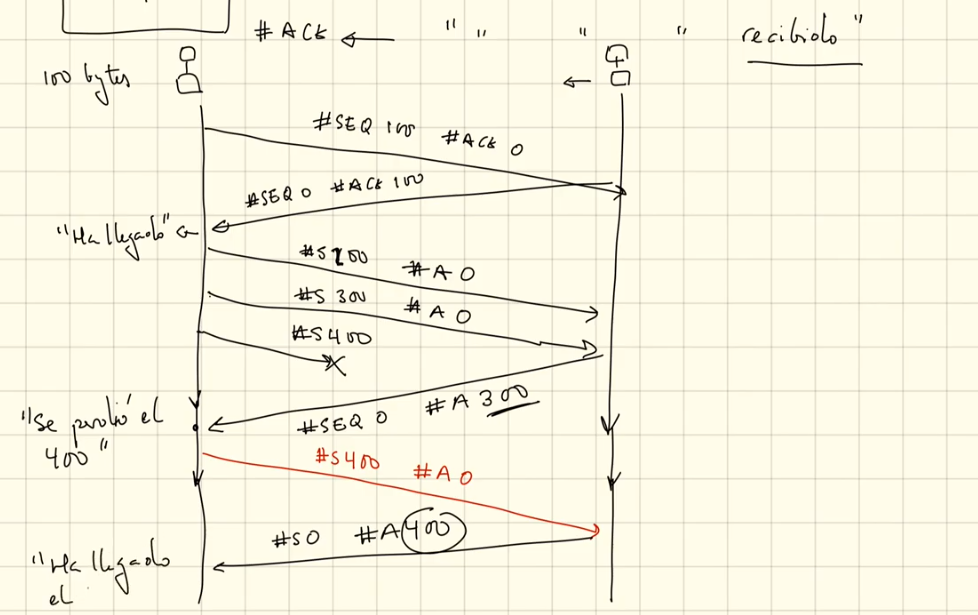 # ACK ← " " " " recibido"
100 bytes
#SEQ 100 #ACK 0
#SEQ 0 #ACK 100
"Ha llegado"
#S200 #A 0
#S 300 #A 0
#S400
#SEQ 0 #A 300
"Se perdió el
400"
#S400 #A 0
#S0 #A 400
"Ha llegado
el